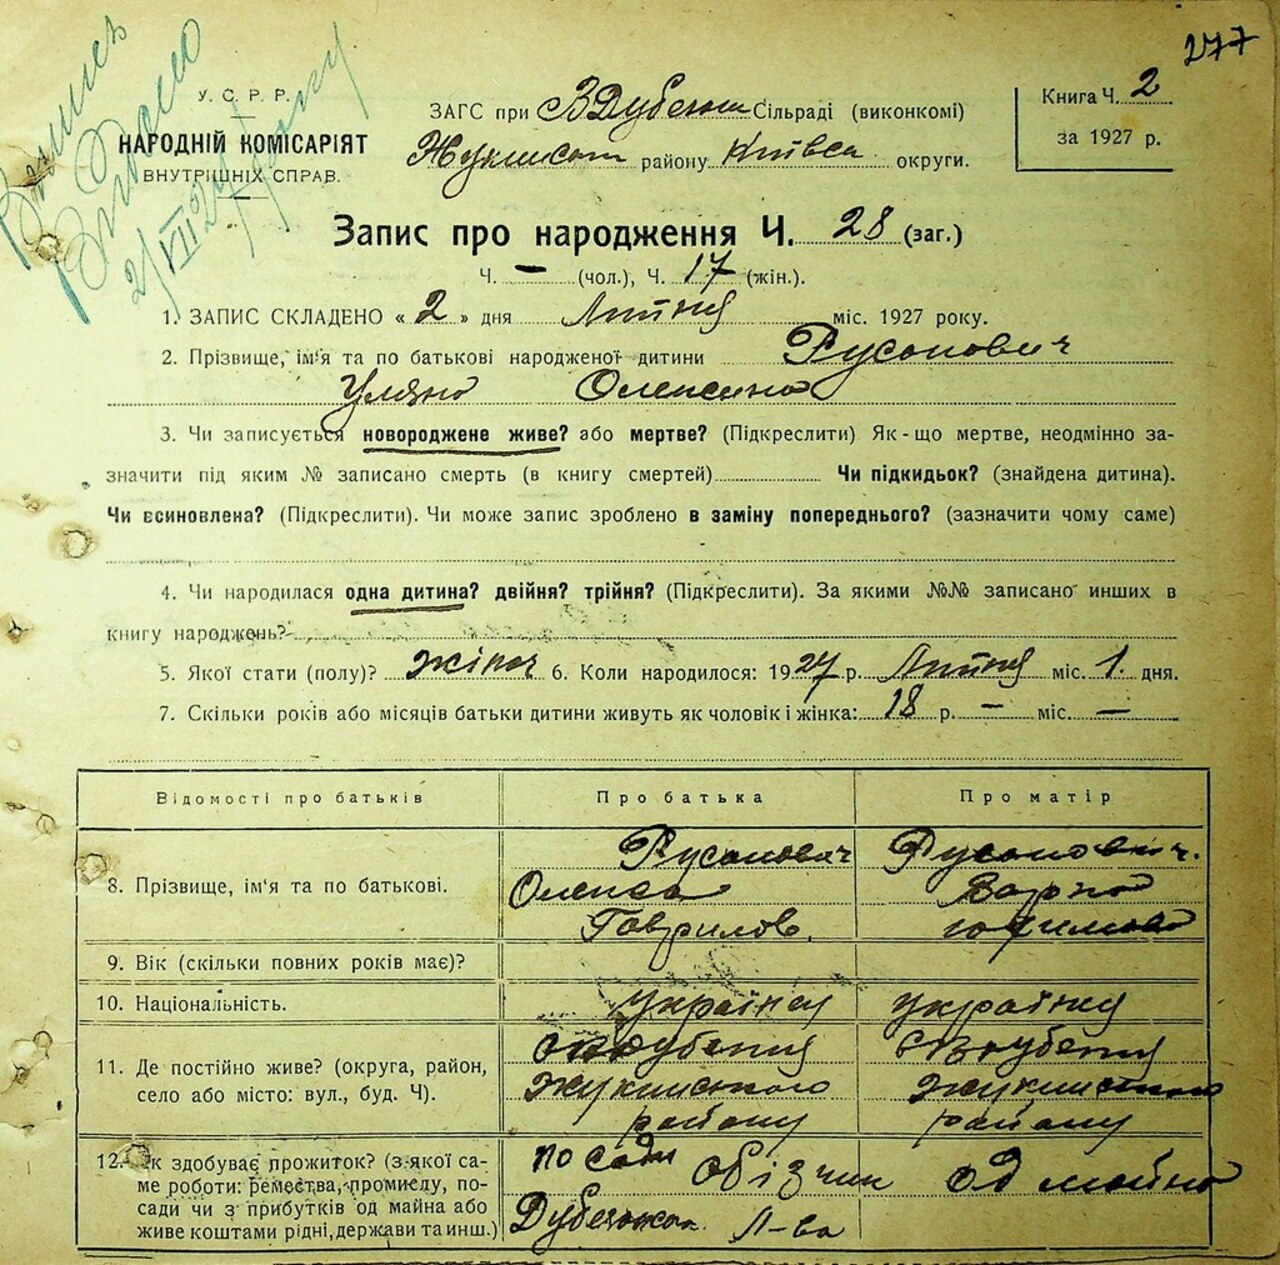 277
У. С. Р. Р.
НАРОДНІЙ КОМІСАРІЯТ
ВНУТРІШНІХ СПРАВ.
ЗАГС при В Дубечн Сільраді (виконкомі)
Жукинськ району Київськ округи.
Книга Ч. 2
за 1927 р.
Запис про народження Ч. 28 (заг.)
Ч. — (чол.), Ч. 17 (жін.).
1. ЗАПИС СКЛАДЕНО « 2 » дня Липня міс. 1927 року.
2. Прізвище, ім'я та по батькові народженої дитини Русанович
Уляна Олексіївна
3. Чи записується новороджене живе? або мертве? (Підкреслити) Як-що мертве, неодмінно за-
значити під яким № записано смерть (в книгу смертей) Чи підкидьок? (знайдена дитина).
Чи всиновлена? (Підкреслити). Чи може запис зроблено в заміну попереднього? (зазначити чому саме)
4. Чи народилася одна дитина? двійня? трійня? (Підкреслити). За якими №№ записано инших в
книгу народжень?
5. Якої стати (полу)? жіноч 6. Коли народилося: 1927 р. Липня міс. 1. дня.
7. Скільки років або місяців батьки дитини живуть як чоловік і жінка: 18 р. — міс. —
Відомості про батьків Про батька Про матір
8. Прізвище, ім'я та по батькові. Русанович Русанович.
Олекса Варка
Гаврилов. Юхимова
9. Вік (скільки повних років має)?
10. Національність. Українец Українка
11. Де постійно живе? (округа, район, село або місто: вул., буд. Ч).
Жукинського Жукинського
району району
12. Як здобуває прожиток? (з якої са-
ме роботи: ремества, промислу, по-
сади чи з прибутків од майна або
живе коштами рідні, держави та инш.)
по сади Обізчик од майна
Дубечанськ. Л-ва